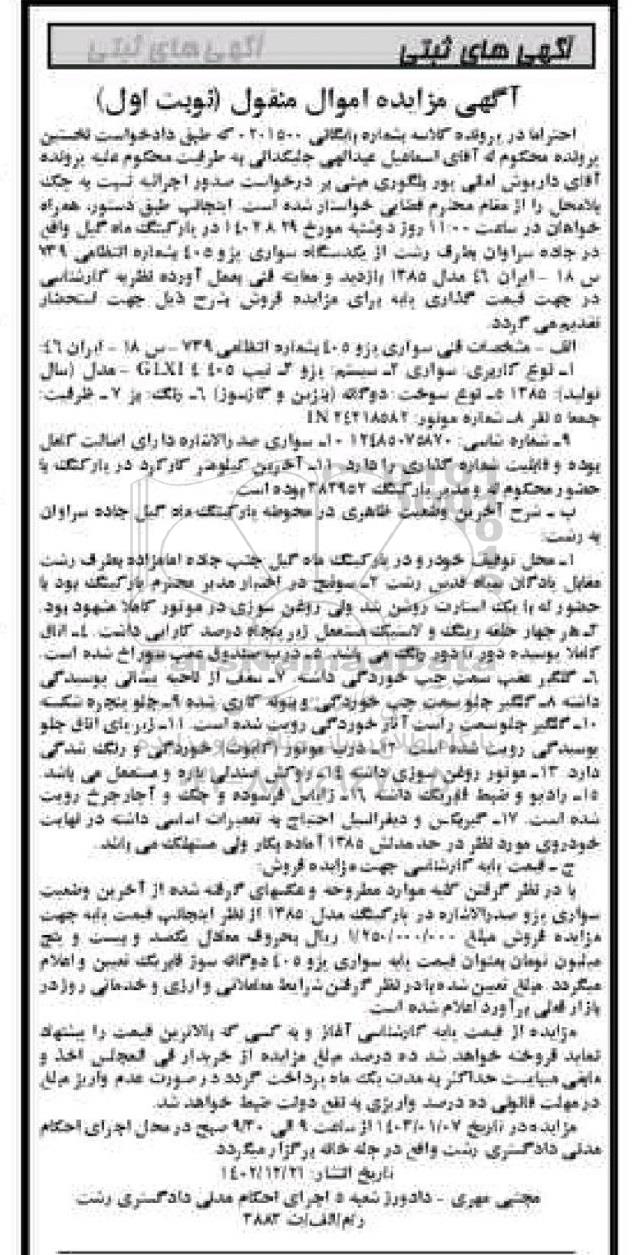 آگهی های ثبتی آگهی های ثبتی
آگهی مزایده اموال منقول (نوبت اول)
احتراما در پرونده کلاسه بشماره بایگانی ۰۲۰۱۵۰۰ که طبق دادخواست نخستین
پرونده محکوم له آقای اسماعیل عبدالهی چلیکدانی به طرفیت محکوم علیه پرونده
آقای داریوش امانی پور بلگوری مبنی بر درخواست صدور اجرائیه نسبت به چک
بلامحل را از مقام محترم قضایی خواستار شده است. اینجانب طبق دستور، همراه
خواهان در ساعت ۱۱:۰۰ روز دوشنبه مورخ ۱۴۰۲،۸،۲۹ در پارکینگ ماه گیل واقع
در جاده سراوان بطرف رشت از یکدستگاه سواری پژو ۴۰۵ بشماره انتظامی ۷۳۹
س ۱۸ - ایران ۴۶ مدل ۱۳۸۵ بازدید و معاینه فنی بعمل آورده نظریه کارشناسی
در جهت قیمت گذاری پایه برای مزایده فروش بشرح ذیل جهت استحضار
تقدیم می گردد.
الف - مشخصات فنی سواری پژو ۴۰۵ بشماره انتظامی ۷۳۹ - س ۱۸ - ایران ۴۶:
۱ـ نوع کاربری: سواری ۲ـ سیستم: پژو ۳ـ تیپ ۴۰۵ GLXI ۴ - مدل (سال
تولید): ۱۳۸۵ ۵ـ نوع سوخت: دوگانه (بنزین و گازسوز) ۶ـ رنگ: بژ ۷ـ ظرفیت:
جمعا ۵ نفر ۸ـ شماره موتور: IN ۲۴۲۱۸۵۸۲
۹ـ شماره شاسی: ۱۲۴۸۵۰۷۵۸۷۰ ۱۰ـ سواری صدرالاشاره دارای اصالت کامل
بوده و قابلیت شماره گذاری را دارد. ۱۱ـ آخرین کیلومتر کارکرد در پارکینگ با
حضور محکوم له و مدیر پارکینگ ۳۸۲۹۵۲ بوده است.
ب ـ شرح آخرین وضعیت ظاهری در محوطه پارکینگ ماه گیل جاده سراوان
به رشت:
۱ـ محل توقیف خودرو در پارکینگ ماه گیل جنب جاده امامزاده بطرف رشت
مقابل پادگان سپاه قدس رشت ۲ـ سوئیچ در اختیار مدیر محترم پارکینگ بود با
حضور له با یک استارت روشن شد ولی روغن سوزی در موتور کاملا مشهود بود.
۳ـ هر چهار حلقه رینگ و لاستیک مستعمل زیر پنجاه درصد کارایی داشت. ۴ـ اتاق
کاملا پوسیده دور تا دور رنگ می باشد. ۵ـ درب صندوق عقب سوراخ شده است.
۶ـ گلگیر عقب سمت چپ خوردگی داشته. ۷ـ سقف از ناحیه پیشانی پوسیدگی
داشته ۸ـ گلگیر جلو سمت چپ خوردگی و بتونه کاری شده ۹ـ جلو پنجره شکسته
۱۰ـ گلگیر جلو سمت راست آثار خوردگی رویت شده است. ۱۱ـ زیر پای اتاق جلو
پوسیدگی رویت شده است ۱۲ـ درب موتور (کاپوت) خوردگی و رنگ شدگی
دارد. ۱۳ـ موتور روغن سوزی داشته ۱۴ـ روکش صندلی پاره و مستعمل می باشد.
۱۵ـ رادیو و ضبط فابریک داشته ۱۶ـ زاپاس فرسوده و جک و آچار چرخ رویت
شده است. ۱۷ـ گیربکس و دیفرانسیل احتیاج به تعمیرات اساسی داشته در نهایت
خودروی مورد نظر در حد مدلش ۱۳۸۵ آماده بکار ولی مستهلک می باشد.
ج ـ قیمت پایه کارشناسی جهت مزایده فروش:
با در نظر گرفتن کلیه موارد مطروحه و عکسهای گرفته شده از آخرین وضعیت
سواری پژو صدرالاشاره در پارکینگ مدل ۱۳۸۵ از نظر اینجانب قیمت پایه جهت
مزایده فروش مبلغ ۱/۲۵۰/۰۰۰/۰۰۰ ریال بحروف معادل یکصد و بیست و پنج
میلیون تومان بعنوان قیمت پایه سواری پژو ۴۰۵ دوگانه سوز فابریک تعیین و اعلام
میگردد. مبلغ تعیین شده با در نظر گرفتن شرایط معاملاتی و ارزی و خدماتی روز در
بازار فعلی برآورد اعلام شده است.
مزایده از قیمت پایه کارشناسی آغاز و به کسی که بالاترین قیمت را پیشنهاد
نماید فروخته خواهد شد ده درصد مبلغ مزایده از خریدار فی المجلس اخذ و
مابقی میبایست حداکثر به مدت یک ماه پرداخت گردد در صورت عدم واریز مبلغ
در مهلت قانونی ده درصد واریزی به نفع دولت ضبط خواهد شد.
مزایده در تاریخ ۱۴۰۳/۰۱/۰۷ از ساعت ۹ الی ۹/۳۰ صبح در محل اجرای احکام
مدنی دادگستری رشت واقع در چله خانه برگزار میگردد.
تاریخ انتشار: ۱۴۰۲/۱۲/۲۱
مجتبی مهری - دادورز شعبه ۵ اجرای احکام مدنی دادگستری رشت
رام/الف/ث ۳۸۸۳